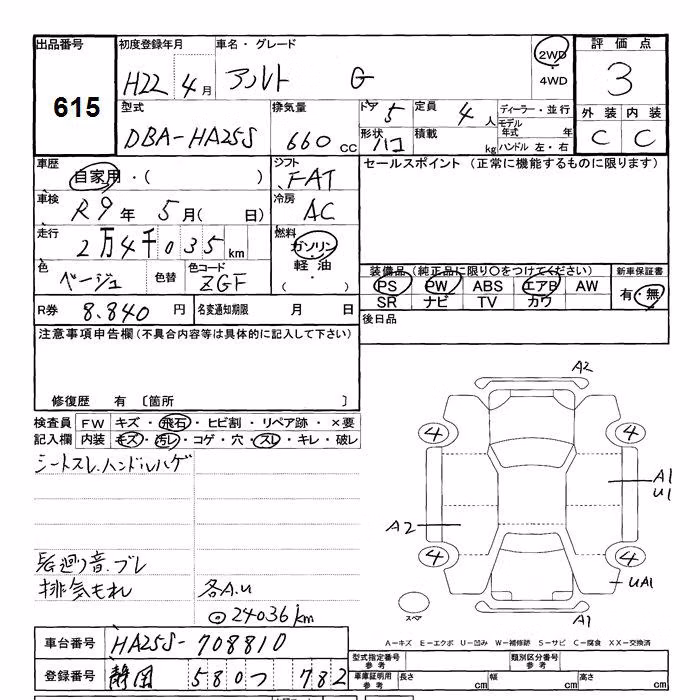 出品番号
615
初度登録年月 車名・グレード
H22 4月 アルト G
2WD
4WD
評価点
3
外装 内装
C C
型式 排気量 ドア 定員
DBA-HA25S 660cc 5 4人
形状 ハコ 積載 kg
ディーラー・並行
モデル年式 年
ハンドル 左・右
車歴 自家用・( )
シフト FAT
車検 R9年 5月( 日)
冷房 AC
走行 2万4千035km
燃料 ガソリン・軽油・( )
色 ベージュ 色替 色コード ZGF
セールスポイント (正常に機能するものに限ります)
装備品(純正品に限り○をつけてください) 新車保証書
PS PW ABS エアB AW
SR ナビ TV カワ
有・無
R券 8.840円 名変通知期限 月 日
後日品
注意事項申告欄(不具合内容等は具体的に記入して下さい)
修復歴 有 〔箇所 〕
検査員 FW キズ・飛石・ヒビ割・リペア跡・×要
記入欄 内装 キズ・汚レ・コゲ・穴・スレ・キレ・破レ
シートスレ.ハンドルハゲ
E/G廻り音.ブレ
排気もれ 各A.U
24036km
A2
4 4
A1
U1
A2
4 4
UA1
スペア
A1
A-キズ E-エクボ U-凹み W-補修跡 S-サビ C-腐食 XX-交換済
車台番号 HA25S-708810
登録番号 静岡 580 つ 782
型式指定番号 参考 類別区分番号 参考
車庫証明用 参考 長さ cm 幅 cm 高さ cm